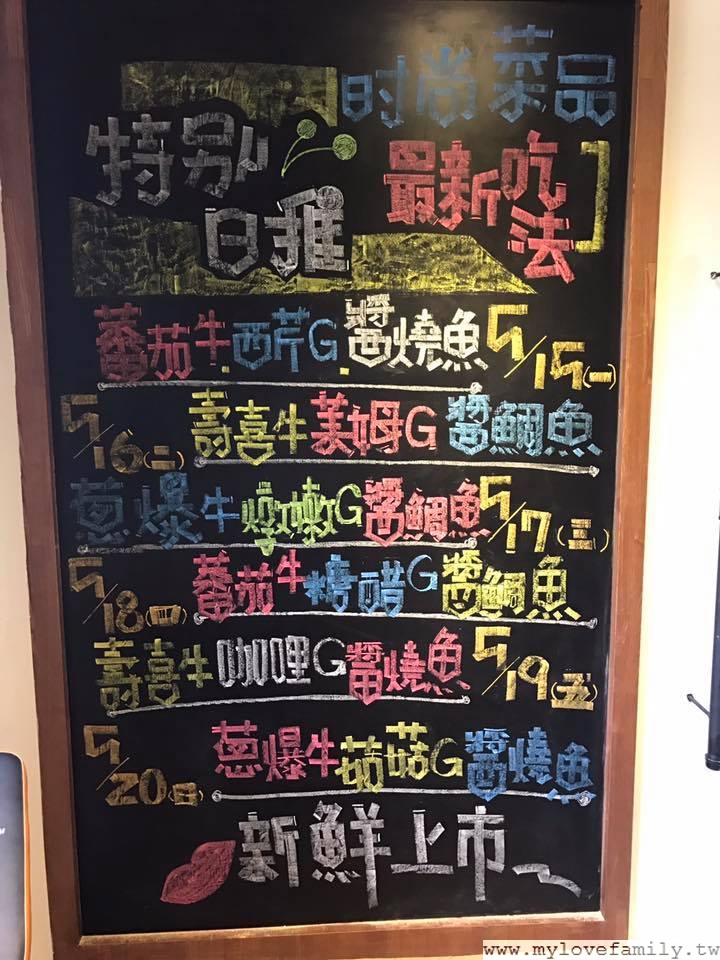 时尚菜品
特别
日推
最新吃
法
蕃茄牛.西芹G.醬燒魚 5/15(一)
5/16(二) 壽喜牛 姆G 醬鯛魚
蔥爆牛 G 醬鯛魚 5/17(三)
5/18(四) 蕃茄牛 糖醋G 醬鯛魚
壽喜牛 咖哩G 醬燒魚 5/19(五)
5/20(日) 蔥爆牛 菇G 醬燒魚
新鮮上市
www.mylovefamily.tw